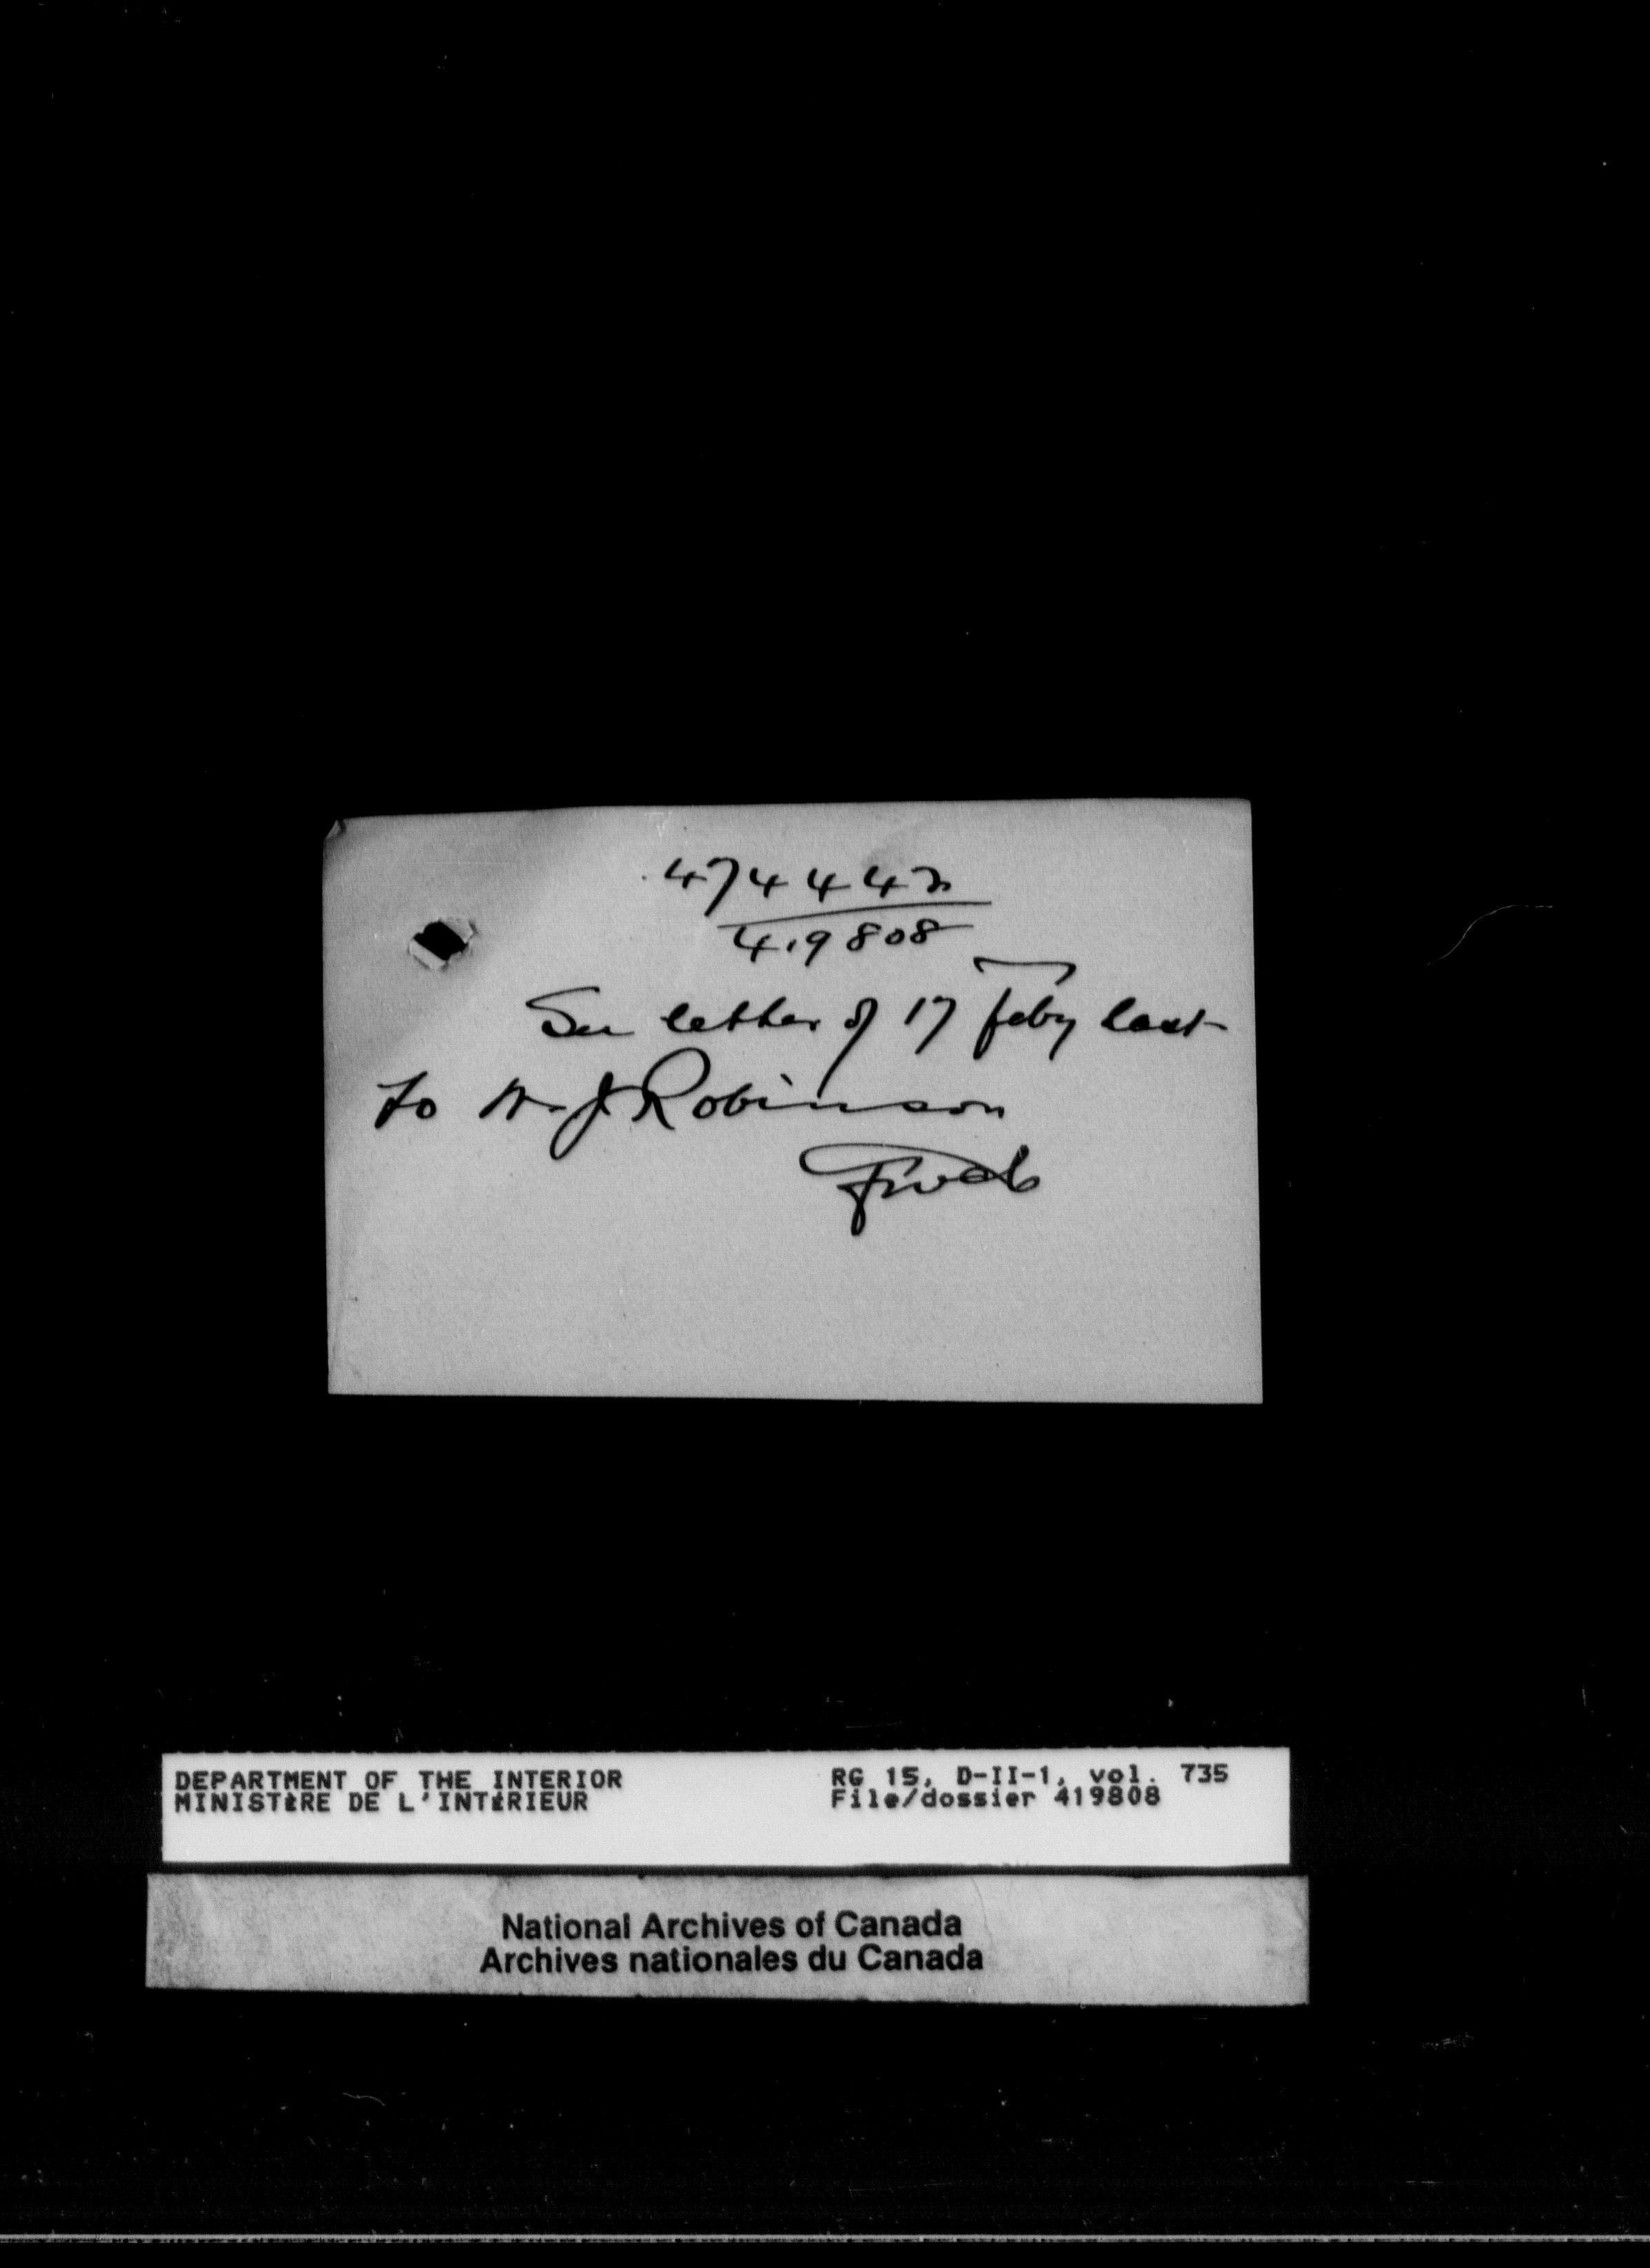 474442
419808
See letter of 17 Feby last
to W. J. Robinson
DEPARTMENT OF THE INTERIOR
MINISTÈRE DE L'INTÉRIEUR
RG 15, D-II-1, vol. 735
File/dossier 419808
National Archives of Canada
Archives nationales du Canada